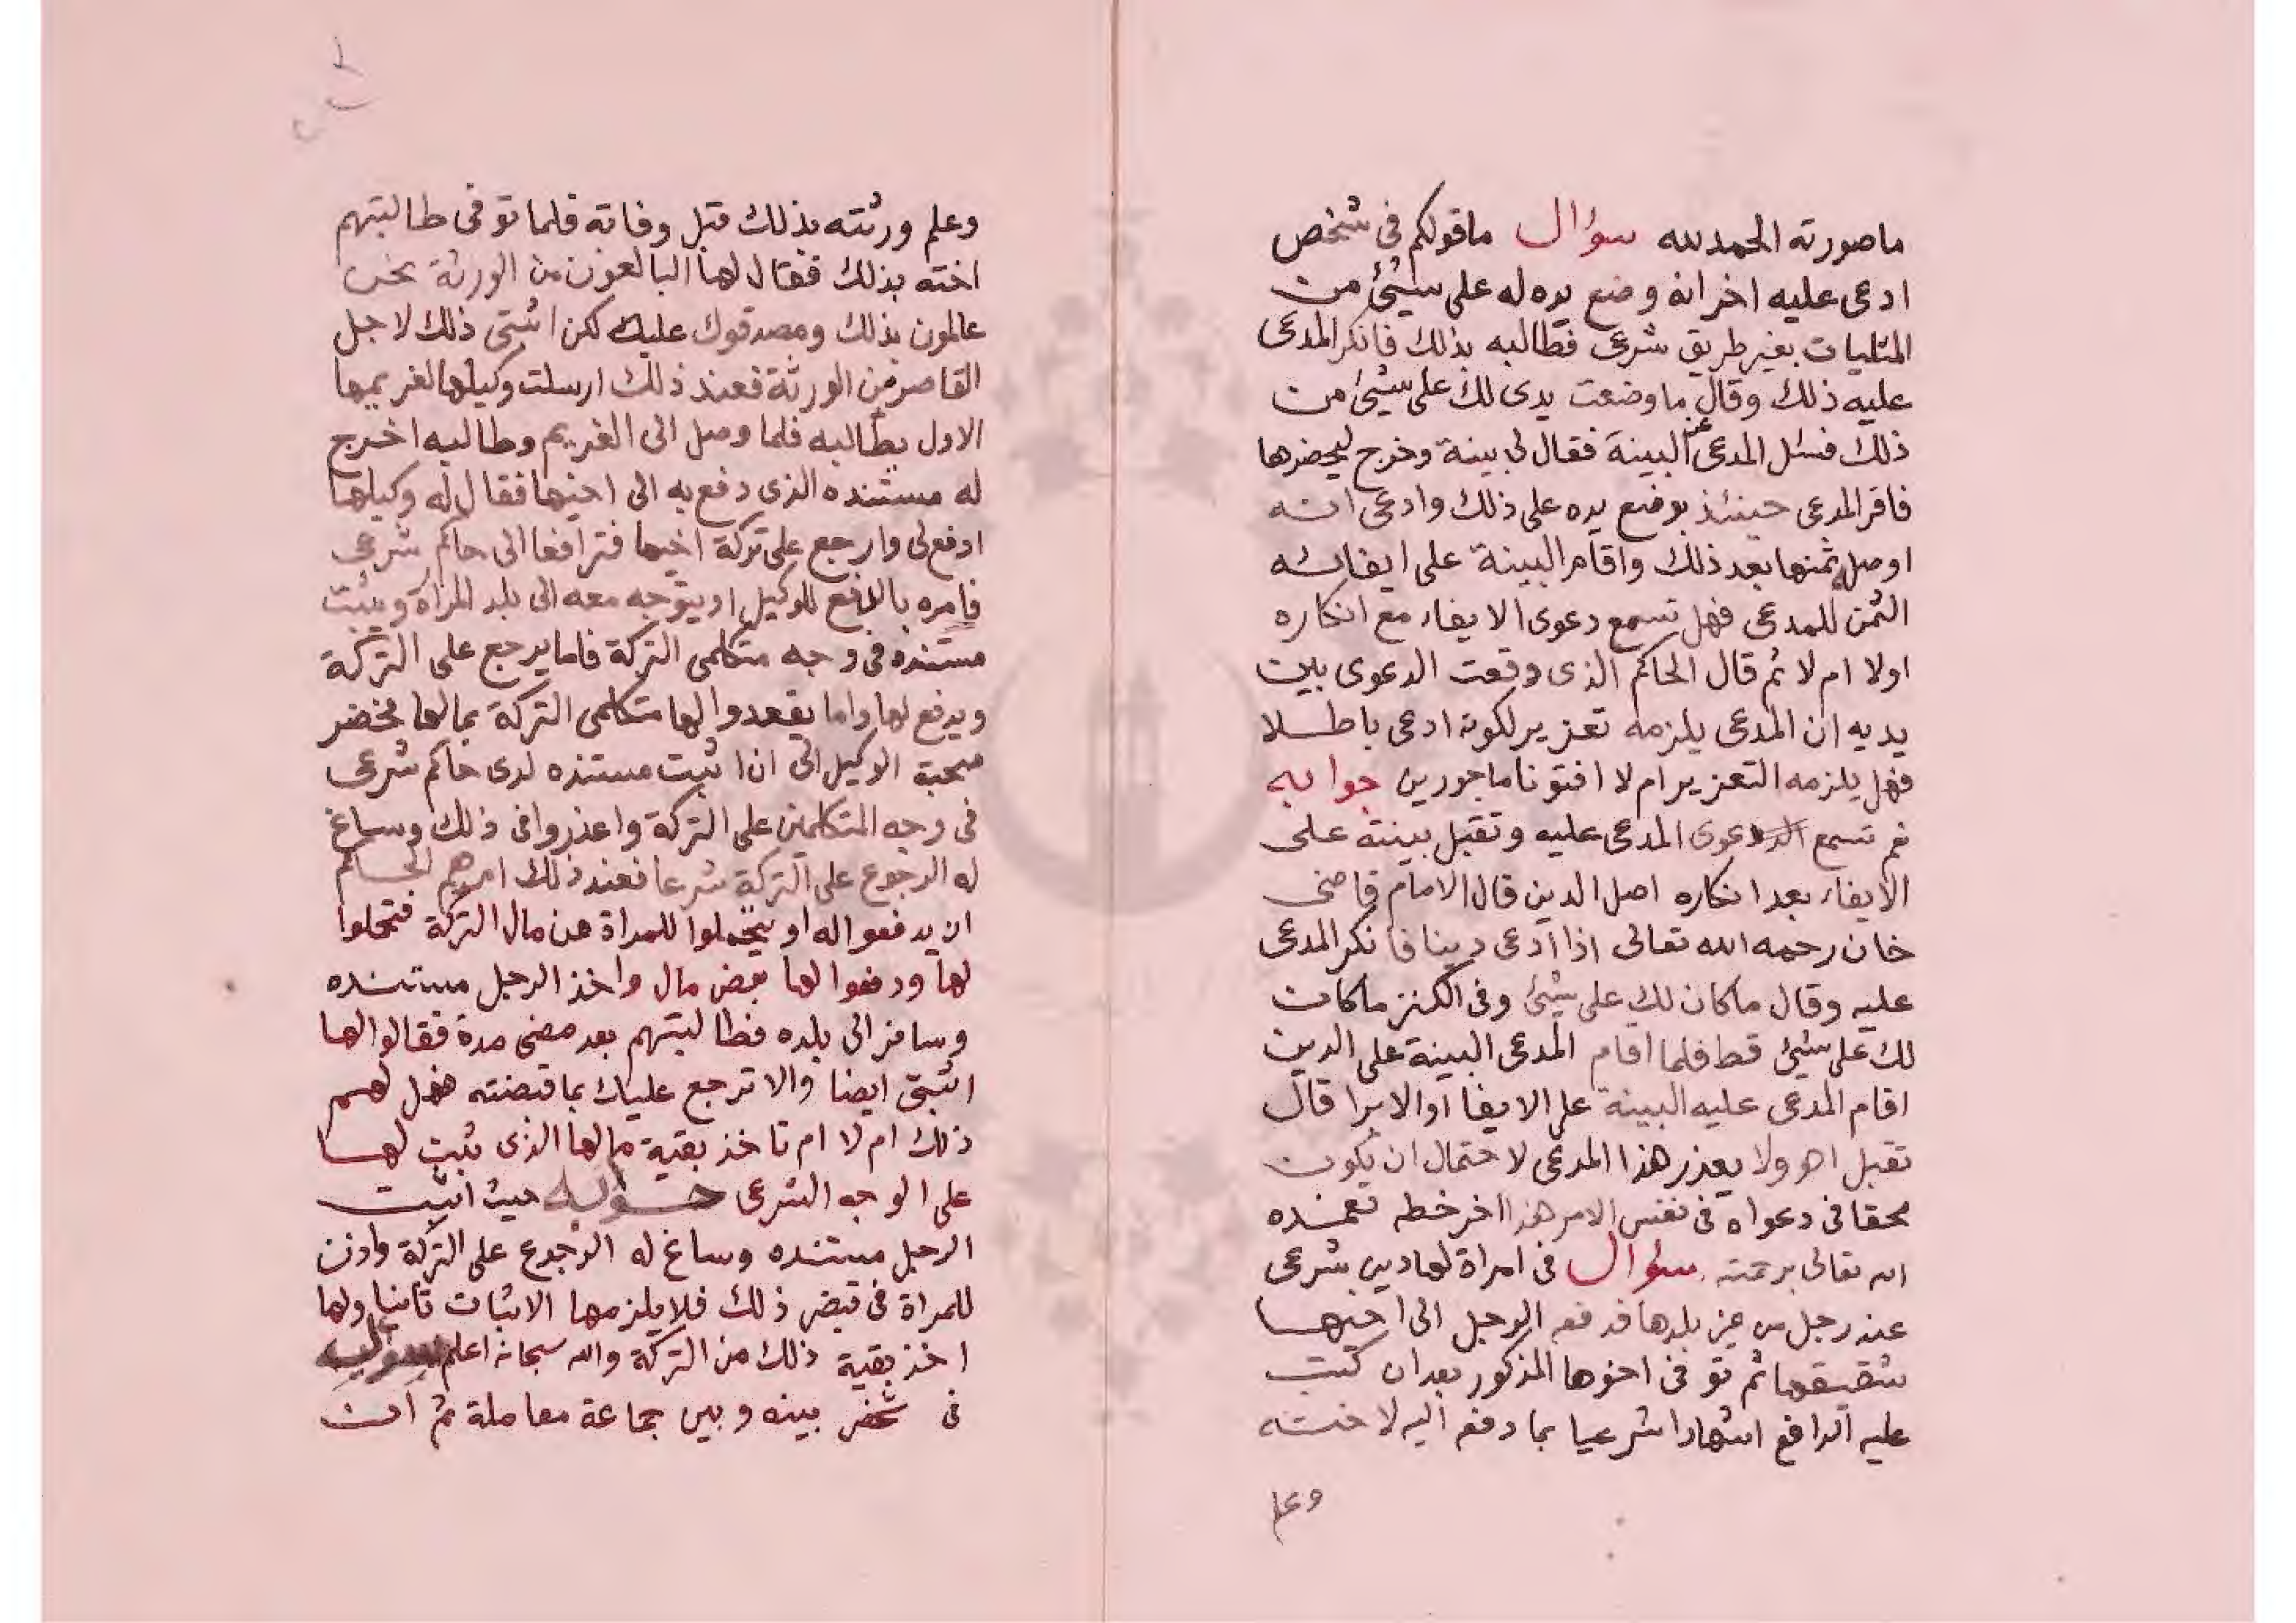 ما صورته الحمد لله سؤال ما قولكم فى شخص
ادعى عليه اخر انه وضع يده له على شيئ من
المثليات بغير طريق شرعى فطالبه بذلك فانكر المدعى
عليه ذلك وقال ما وضعت يدى لك على شيئ من
ذلك فسئل المدعى عن البينة فقال لى بينة وخرج ليحضرها
فاقر المدعى حينئذ بوضع يده على ذلك وادعى انه
اوصله ثمنها بعد ذلك واقام البينة على ايفائه
الثمن للمدعى فهل تسمع دعوى الايفاء مع انكاره
اولا ام لا ثم قال الحاكم الذى وقعت الدعوى بين
يديه ان المدعى يلزمه تعزير لكونه ادعى باطلا
فهل يلزمه التعزير ام لا افتونا ماجورين جوابه
نعم تسمع دعوى المدعى عليه وتقبل بينته على
الايفاء بعد انكاره اصل الدين قال الامام قاضى
خان رحمه الله تعالى اذا ادعى دينا فانكر المدعى
عليه وقال ما كان لك على شيئ وفى الكنز ما كان
لك على شيئ قط فلما اقام المدعى البينة على الدين
اقام المدعى عليه البينة على الايفا او الابرا قال
تقبل اهـ ولا يعذر هذا المدعى لاحتمال ان يكون
محقا فى دعواه فى نفس الامر هذا اخر خطه تغمده
الله تعالى برحمته سؤال فى امراة لها دين شرعى
عند رجل من غير بلدها فدفعه الرجل الى اخيها
شقيقها ثم توفى اخوها المذكور بعد ان كتب
عليه الدافع اشهادا شرعيا بما دفع اليه لاخته
وعلم
وعلم ورثته بذلك قبل وفاته فلما توفى طالبتهم
اخته بذلك فقال لها البالغون من الورثة نحن
عالمون بذلك ومصدقوك عليه لكن اثبتى ذلك لاجل
القاصر من الورثة فعند ذلك ارسلت وكيلها لغريمها
الاول يطالبه فلما وصل الى الغريم وطالبه اخرج
له مستنده الذى دفع به الى اخيها فقال له وكيلها
ادفع لى وارجع على تركة اخيها فترافعا الى حاكم شرعى
فامره بالدفع للوكيل او يتوجه معه الى بلد المراة ويثبت
مستنده فى وجه متكلمى التركة فاما يرجع على التركة
ويدفع لها واما يقعدوا لها متكلمى التركة بمالها فحضر
صحبة الوكيل الى ان اثبت مستنده لدى حاكم شرعى
فى وجه المتكلمين على التركة واعذروا فى ذلك وساغ
له الرجوع على التركة شرعا فعند ذلك امرهم الحاكم
ان يدفعوا له او يتحملوا للمراة من مال التركة فتحملوا
لها ودفعوا لها بعض مال واخذ الرجل مستنده
وسافر الى بلده فطالبتهم بعد مضى مدة فقالوا لها
اثبتى ايضا والا نرجع عليك بما قبضته فهل لهم
ذلك ام لا ام تاخذ بقية مالها الذى ثبت لها
على الوجه الشرعى جوابه حيث اثبت
الرجل مستنده وساغ له الرجوع على التركة واذن
للمراة فى قبض ذلك فلا يلزمها الاثبات ثانيا ولها
اخذ بقية ذلك من التركة والله سبحانه اعلم سؤال
فى شخص بينه وبين جماعة معاملة ثم ان